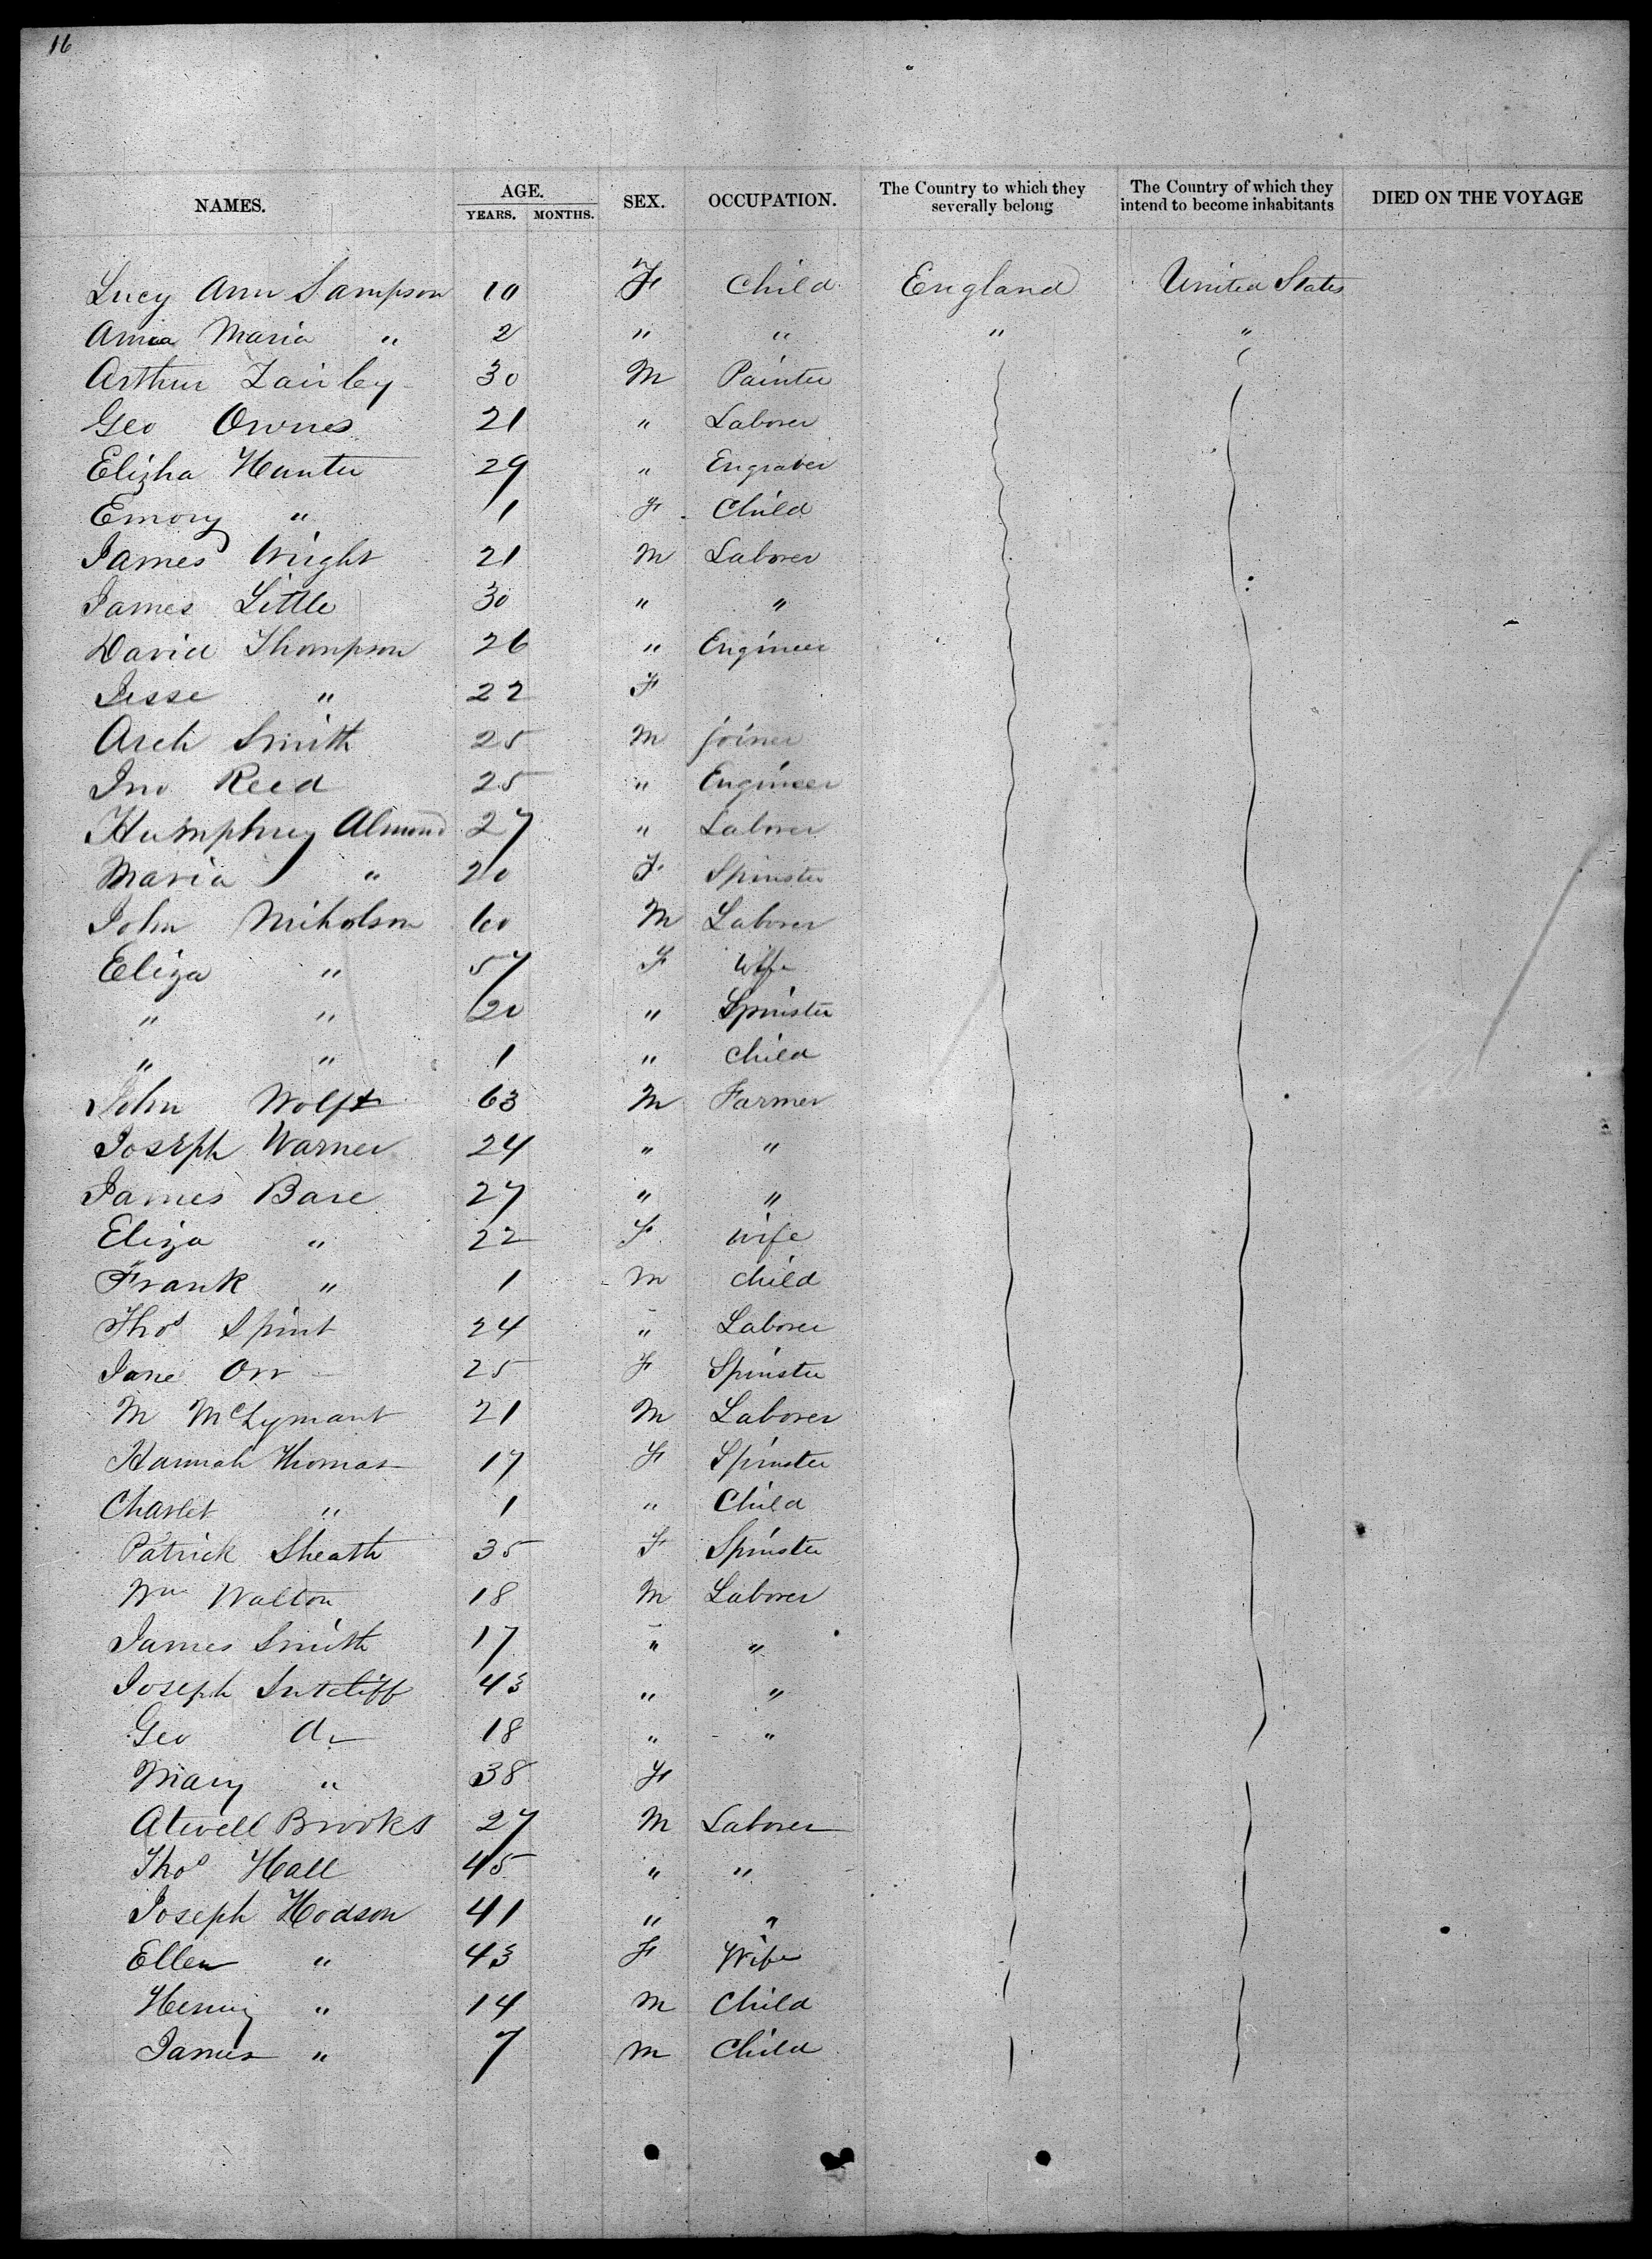 16
NAMES. AGE. YEARS. MONTHS. SEX. OCCUPATION. The Country to which they severally belong The Country of which they intend to become inhabitants DIED ON THE VOYAGE
Lucy Ann Sampson 10 F Child England United States
Maria " 2 " " " "
Arthur 30 M Painter
Geo Ownes 21 " Laborer
Elizha Hunter 29 " Engraver
Emory " 1 F Child
James Wright 21 M Laborer
James Little 30 " "
David Thompson 26 " Engineer
Jesse " 22 F
Arch Smith 25 M Joiner
Jno Reed 25 " Engineer
Humphrey Almond 27 " Laborer
Maria " 20 F Spinster
John Nicholson 60 M Laborer
Eliza " 57 F Wife
" " 20 " Spinster
" " 1 " Child
John 63 M Farmer
Joseph Warner 24 " "
James Bare 27 " "
Eliza " 22 F Wife
Frank " 1 M Child
Thos Spint 24 " Laborer
Jane Orr 25 F Spinster
M McLymant 21 M Laborer
Hannah Thomas 17 F Spinster
Charlet " 1 " Child
Patrick Sheath 35 F Spinster
Wm Walton 18 M Laborer
James Smith 17 " "
Joseph Sutcliff 43 " "
Geo 18 " "
Mary " 38 F
Atwell Brooks 27 M Laborer
Thos Hall 45 " "
Joseph Hodson 41 " "
Ellen " 43 F Wife
Henry " 14 M Child
James " 7 M Child